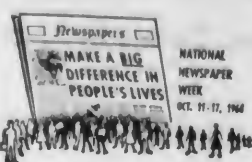 Newspapers
MAKE A BIG
DIFFERENCE IN
PEOPLE'S LIVES
NATIONAL
NEWSPAPER
WEEK
OCT. 11-17, 1964